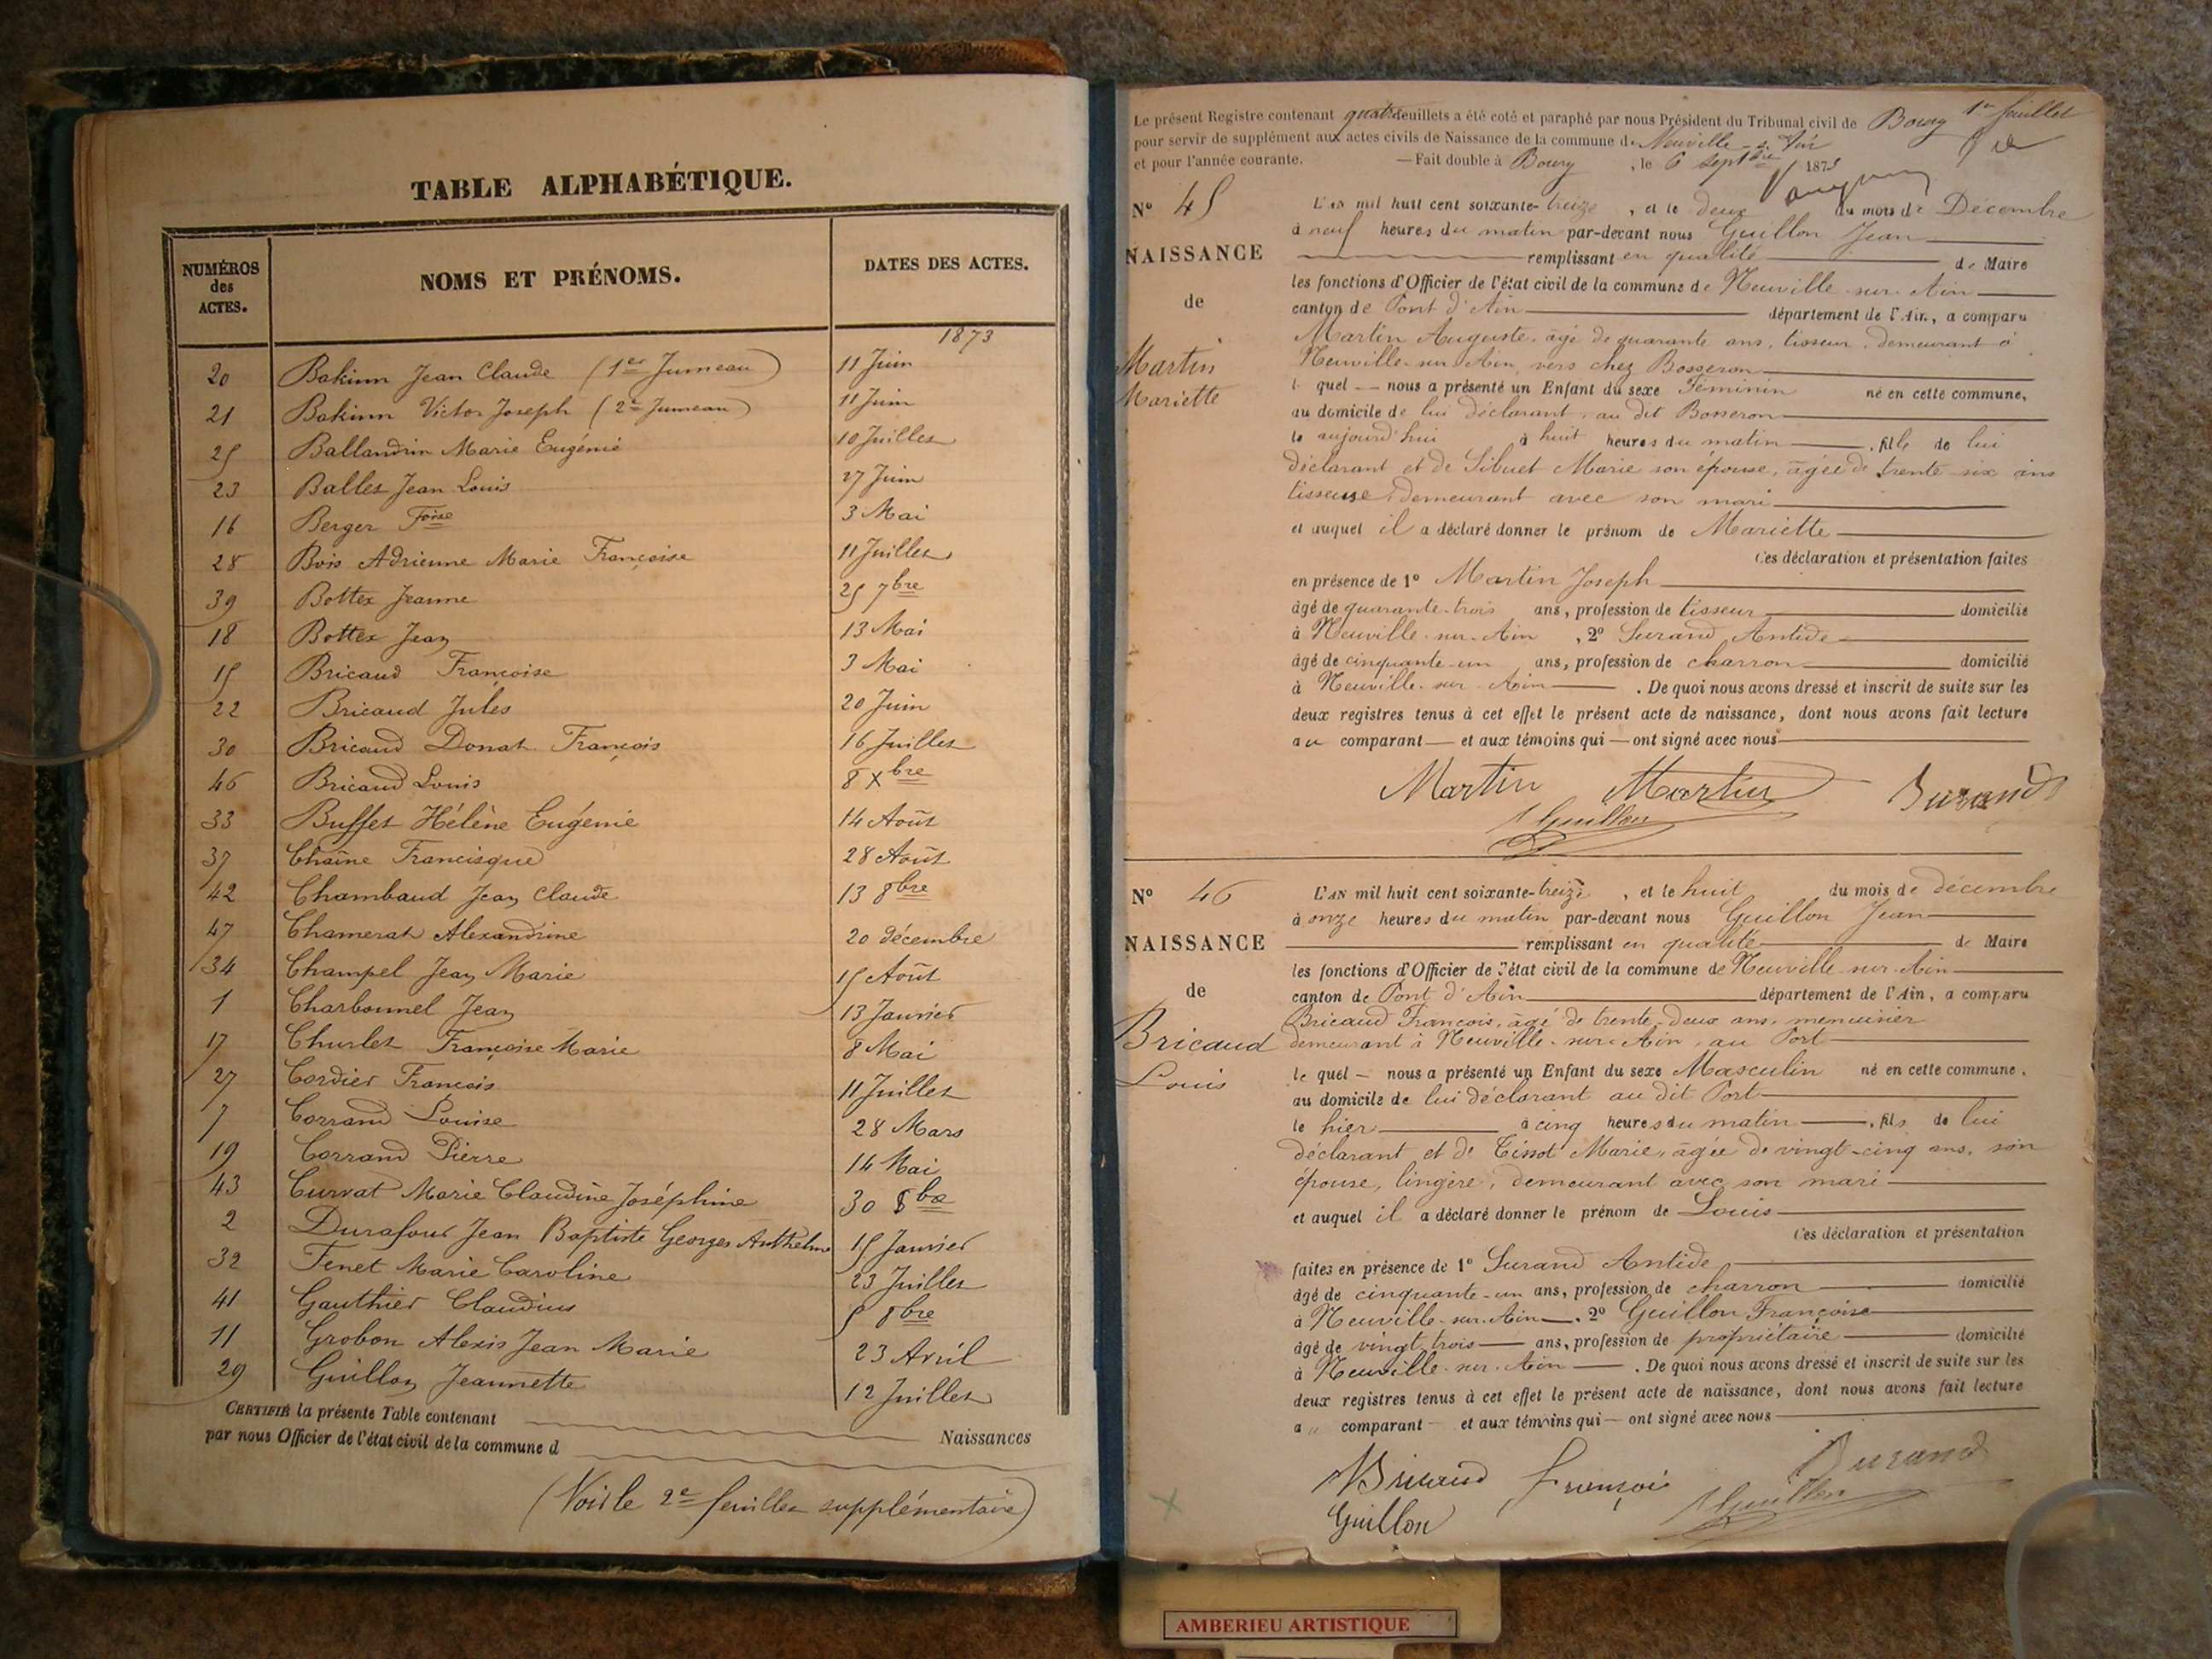 TABLE ALPHABÉTIQUE.
NUMÉROS des ACTES. NOMS ET PRÉNOMS. DATES DES ACTES.
1873
20 Bakinn Jean Claude (1er Jumeau) 11 Juin
21 Bakinn Victor Joseph (2e Jumeau) 11 Juin
25 Ballandrin Marie Eugénie 10 Juillet
23 Ballet Jean Louis 27 Juin
16 Berger Foise 3 Mai
28 Bois Adrienne Marie Françoise 11 Juillet
39 Bottex Jeanne 25 7bre
18 Bottex Jean 13 Mai
15 Bricaud Françoise 3 Mai
22 Bricaud Jules 20 Juin
30 Bricaud Donat François 16 Juillet
46 Bricaud Louis 8 Xbre
33 Buffet Hélène Eugénie 14 Août
37 Chaîne Francisque 28 Août
42 Chambaud Jean Claude 13 8bre
47 Chamerat Alexandrine 20 Décembre
34 Champel Jean Marie 15 Août
1 Charbonnel Jean 13 Janvier
17 Churlet Françoise Marie 8 Mai
27 Cordier François 11 Juillet
7 Corrand Louise 28 Mars
19 Corrand Pierre 14 Mai
43 Curvat Marie Claudine Joséphine 30 8bre
2 Durafour Jean Baptiste Georges Anthelme 15 Janvier
32 Fenet Marie Caroline 23 Juillet
41 Gauthier Claudius 5 8bre
11 Grobon Alexis Jean Marie 23 Avril
29 Guillon Jeannette 12 Juillet
CERTIFIÉ la présente Table contenant Naissances
par nous Officier de l'état civil de la commune d
(Voir le 2e feuillet supplémentaire)
1er feuillet
Le présent Registre contenant quatre feuillets a été coté et paraphé par nous Président du Tribunal civil de Bourg
pour servir de supplément aux actes civils de Naissance de la commune de Neuville-s-Ain
et pour l'année courante. — Fait double à Bourg, le 6 septbre 1873
N° 45
NAISSANCE
de
Martin
Mariette
L'AN mil huit cent soixante-treize, et le deux du mois de Décembre
à neuf heures du matin par-devant nous Guillon Jean
remplissant en qualité de Maire
les fonctions d'Officier de l'état civil de la commune de Neuville-sur-Ain
canton de Pont d'Ain département de l'Ain, a comparu
Martin Auguste, âgé de quarante ans, tisseur, demeurant à
Neuville-sur-Ain, vers chez Bosseron
lequel — nous a présenté un Enfant du sexe Féminin né en cette commune,
au domicile de lui déclarant, au dit Bosseron
le aujourd'hui à huit heures du matin, fille de lui
déclarant et de Sibuet Marie son épouse, âgée de trente six ans
tisseuse, demeurant avec son mari
et auquel il a déclaré donner le prénom de Mariette
Ces déclaration et présentation faites
en présence de 1° Martin Joseph
âgé de quarante-trois ans, profession de tisseur domicilié
à Neuville-sur-Ain, 2° Durand Antide
âgé de cinquante-un ans, profession de charron domicilié
à Neuville-sur-Ain. De quoi nous avons dressé et inscrit de suite sur les
deux registres tenus à cet effet le présent acte de naissance, dont nous avons fait lecture
au comparant — et aux témoins qui — ont signé avec nous
Martin Martin Durand
Guillon
N° 46
NAISSANCE
de
Bricaud
Louis
L'AN mil huit cent soixante-treize, et le huit du mois de décembre
à onze heures du matin par-devant nous Guillon Jean
remplissant en qualité de Maire
les fonctions d'Officier de l'état civil de la commune de Neuville-sur-Ain
canton de Pont d'Ain département de l'Ain, a comparu
Bricaud François, âgé de trente-deux ans, menuisier
demeurant à Neuville-sur-Ain, au Port
lequel — nous a présenté un Enfant du sexe Masculin né en cette commune,
au domicile de lui déclarant au dit Port
le hier à cinq heures du matin, fils de lui
déclarant et de Tissot Marie, âgée de vingt-cinq ans, son
épouse, lingère, demeurant avec son mari
et auquel il a déclaré donner le prénom de Louis
Ces déclaration et présentation
faites en présence de 1° Durand Antide
âgé de cinquante-un ans, profession de charron domicilié
à Neuville-sur-Ain. 2° Guillon Françoise
âgé de vingt trois ans, profession de propriétaire domicilié
à Neuville-sur-Ain. De quoi nous avons dressé et inscrit de suite sur les
deux registres tenus à cet effet le présent acte de naissance, dont nous avons fait lecture
au comparant — et aux témoins qui — ont signé avec nous
Bricaud François Durand
Guillon Guillon
AMBERIEU ARTISTIQUE